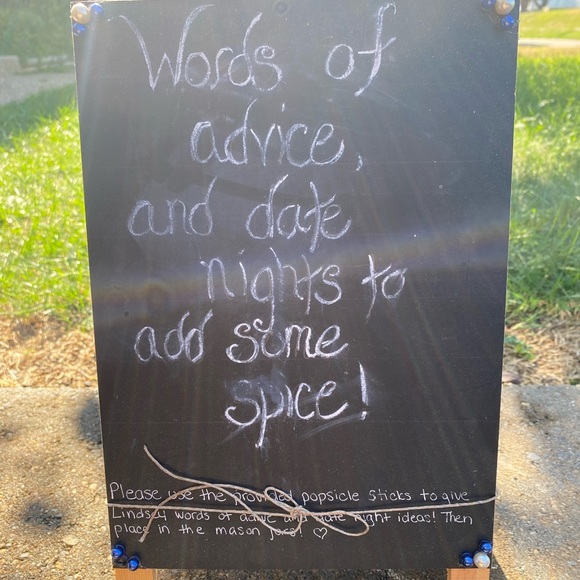 Words of
advice,
and date
nights to
add some
spice!
Please use the provided popsicle sticks to give
Lindsey words of advice and date night ideas! Then
place in the mason jars! ♡